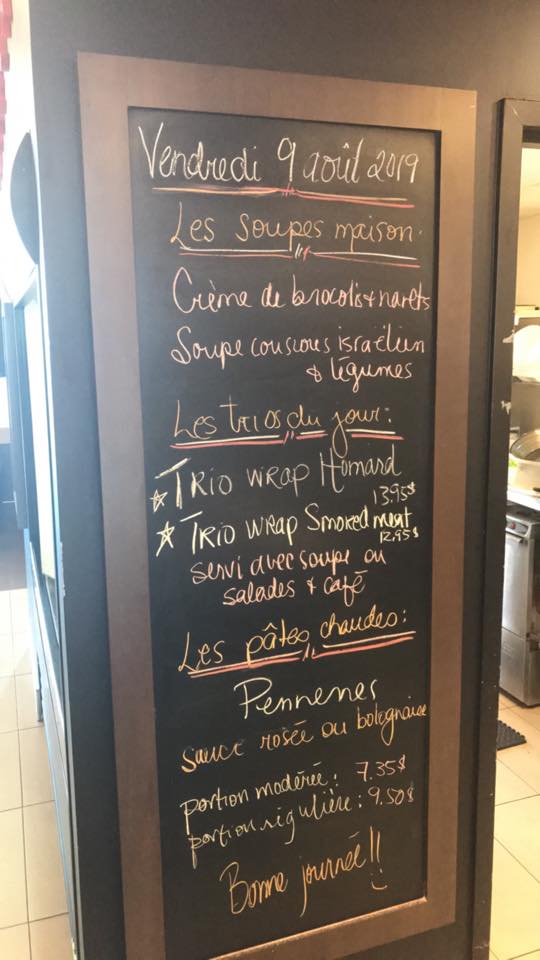 Vendredi 9 août 2019
Les soupes maison:
Crème de brocolis + navets
Soupe couscous israëlien
& légumes
Les trios du jour:
Trio wrap Homard
13.95$
Trio wrap Smoked meat
12.95$
servi avec soupe ou
salades + café
Les pâtes chaudes:
Pennenes
sauce rosée ou bolognaise
portion modérée: 7.35$
portion régulière: 9.50$
Bonne journée!!